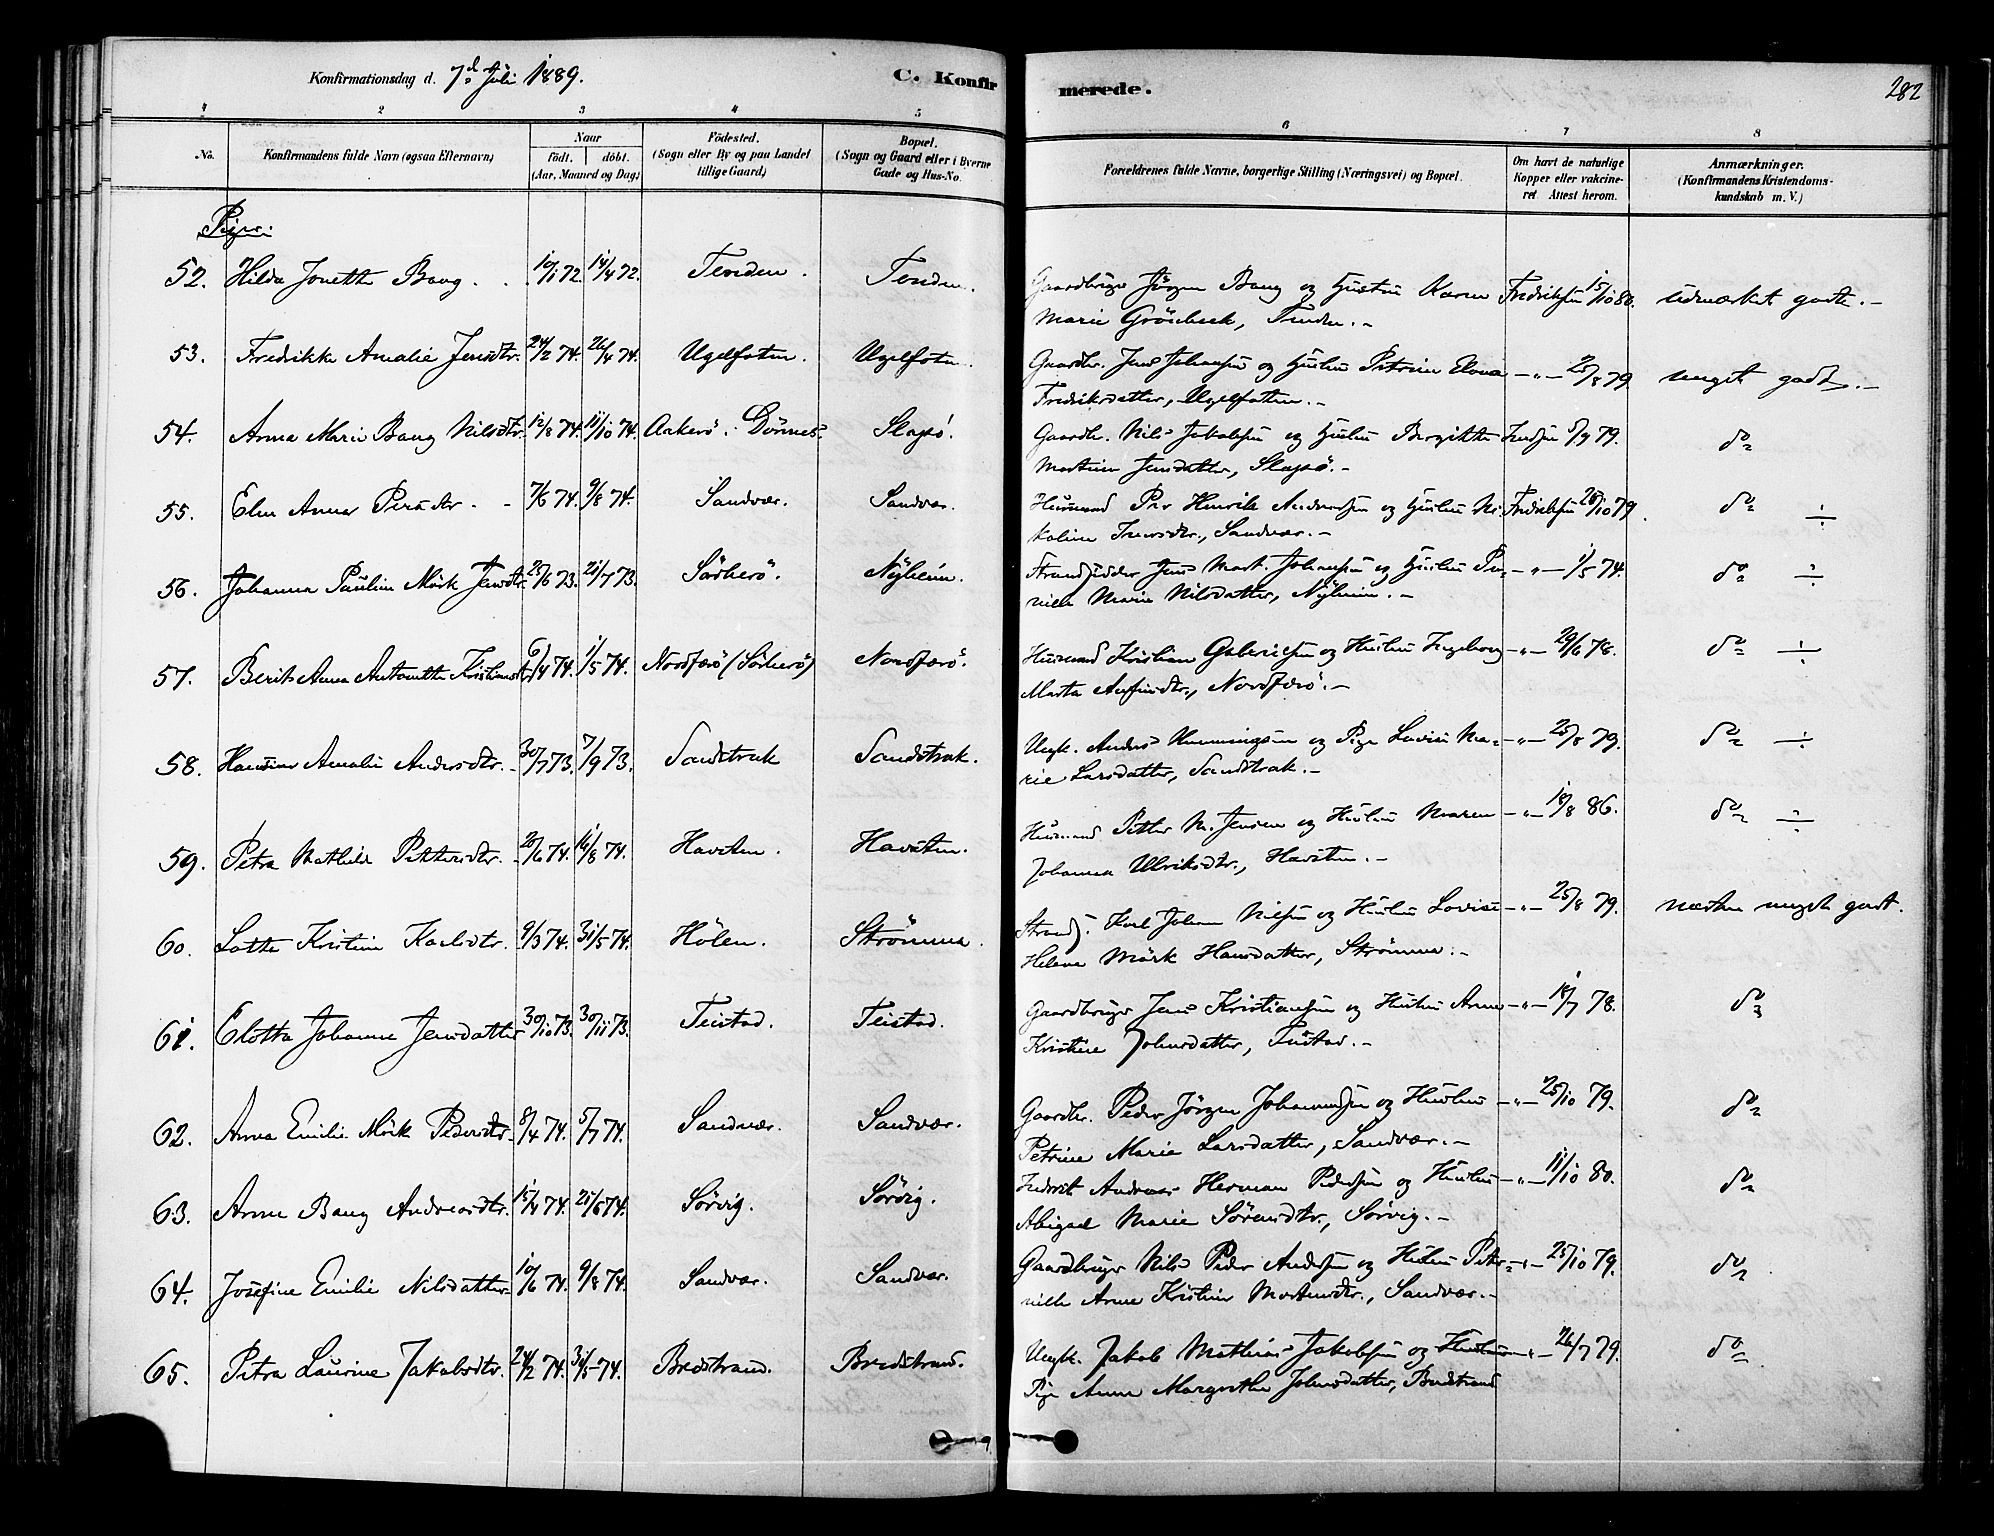 Konfirmationsdag d. 7de Juli 1889.
C. Konfirmerede.
282
1 2 3 4 5 6 7 8
No. Konfirmandens fulde Navn (ogsaa Efternavn) Naar födt. döbt. (Aar, Maaned og Dag) Födested. (Sogn eller By og paa Landet tillige Gaard) Bopæl. (Sogn og Gaard eller i Byerne Gade og Hus-No. Forældrenes fulde Navne, borgerlige Stilling (Næringsvei) og Bopæl. Om havt de naturlige Kopper eller vakcineret Attest herom. Anmærkninger. (Konfirmandens Kristendomskundskab m. V.)
Piger:
52. Hilda Jonette Bang 10/1 72. 14/4 72. Tenden. Tenden. Gaardbruger Jörgen Bang og Hustru Karen Fredriksen 15/10 80. udmærket godt. -
Marie Grönbeck, Tenden. -
53. Fredrikke Amalie Jensdtr. 24/2 74. 26/4 74. Ugelfoten. Ugelfoten. Gaardbr. Jens Johansen og Hustru Petrine Elona - " - 25/8 79. meget godt. -
Fredriksdatter, Ugelfoten. -
54. Anna Marie Bang Nilsdtr. 12/8 74. 11/10 74. Aakerö. Dönnes. Slapö. Gaardbr. Nils Jakobsen og Hustru Bergitte 5/9 79. do
Martine Jensdatter, Slapö. -
55. Elen Anna Persdtr. - 7/6 74. 9/8 74. Sandvær. Sandvær. Husmand Per Henrik Andersen og Hustru Ni- Fredriksen 26/10 79. do ÷
koline Iversdtr., Sandvær. -
56. Johanna Pauline Mörk Jensdtr. 25/6 73. 21/7 73. Sörherö. Nyheim. Strandsidder Jens Mart. Johansen og Hustru Per- - " - 1/5 74. do ÷
nille Marie Nilsdatter, Nyheim. -
57. Berit Anna Antonette Kristiansdtr. 6/4 74. 1/5 74. Nordfærö (Sörherö) Nordfærö. Husmand Kristian Gabrielsen og Hustru Ingeborg - " - 29/6 78. do ÷
Marta Anfinsdtr., Nordfærö. -
58. Hansine Amalie Andersdtr. - 30/7 73. 7/9 73. Sandstrak Sandstrak. Ungk. Anders Henningsen og Pige Lovise Ma- - " - 25/8 79. do ÷
rie Larsdatter, Sandstrak. -
59. Petra Mathilde Pettersdtr. - 20/6 74. 16/8 74. Havsten. Havsten. Husmand Petter M. Jensen og Hustru Maren - " - 18/8 86. do ÷
Johanna Ulriksdtr., Havsten. -
60. Lotte Kristine Karlsdtr. 9/3 74. 31/5 74. Hölen. Strömma. Strands. Karl Johan Nilsen og Hustru Lovise - " - 25/8 79. næsten meget godt.
Helene Mörk Hansdatter, Strömma. -
61. Elotta Johanne Jensdatter 30/10 73. 30/11 73. Teistad. Teistad. Gaardbruger Jens Kristiansen og Hustru Anne - " - 18/7 78. do
Kristine Johnsdatter, Teistad. -
62. Anna Emilie Mörk Pedersdtr. 8/4 74. 5/7 74. Sandvær. Sandvær. Gaardbr. Peder Jörgen Johannesen og Hustru - " - 25/10 79. do
Petrine Marie Larsdatter, Sandvær. -
63. Anne Bang Andreasdtr. 15/4 74. 21/6 74. Sörvig. Sörvig. Inderst Andreas Herman Pedersen og Hustru - " - 11/10 80. do
Abigael Marie Sörensdtr., Sörvig. -
64. Josefine Emilie Nilsdatter 10/6 74. 9/8 74. Sandvær. Sandvær. Gaardbruger Nils Peder Andersen og Hustru Peter- - " - 25/10 79. do
nille Anne Kristine Mortensdtr., Sandvær. -
65. Petra Laurine Jakobsdtr. 24/2 74. 31/5 74. Bredstrand. Bredstrand. Ungk. Jakob Mathias Jakobsen og Hustru - " - 26/7 79. do
Pige Anne Margrethe Johnsdatter, Bredstrand